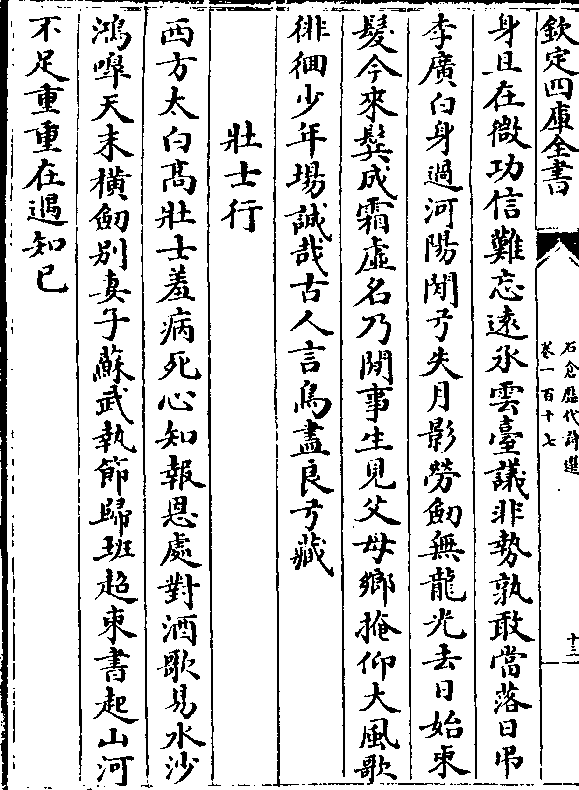 欽定四庫全書
石倉歷代詩選
卷一百十七
十三
身且在微功信難忘遠承雲臺議非勢孰敢當落日弔
李廣白身過河陽閒弓失月影勞劒無龍光去日始束
髮今來鬂成霜虛名乃閒事生見父母鄉掩仰大風歌
徘徊少年場誠哉古人言鳥盡良弓藏
壯士行
西方太白髙壯士羞病死心知報恩處對酒歌易水沙
鴻嘷天末橫劒别妻子蘇武執節歸班超束書起山河
不足重重在遇知已